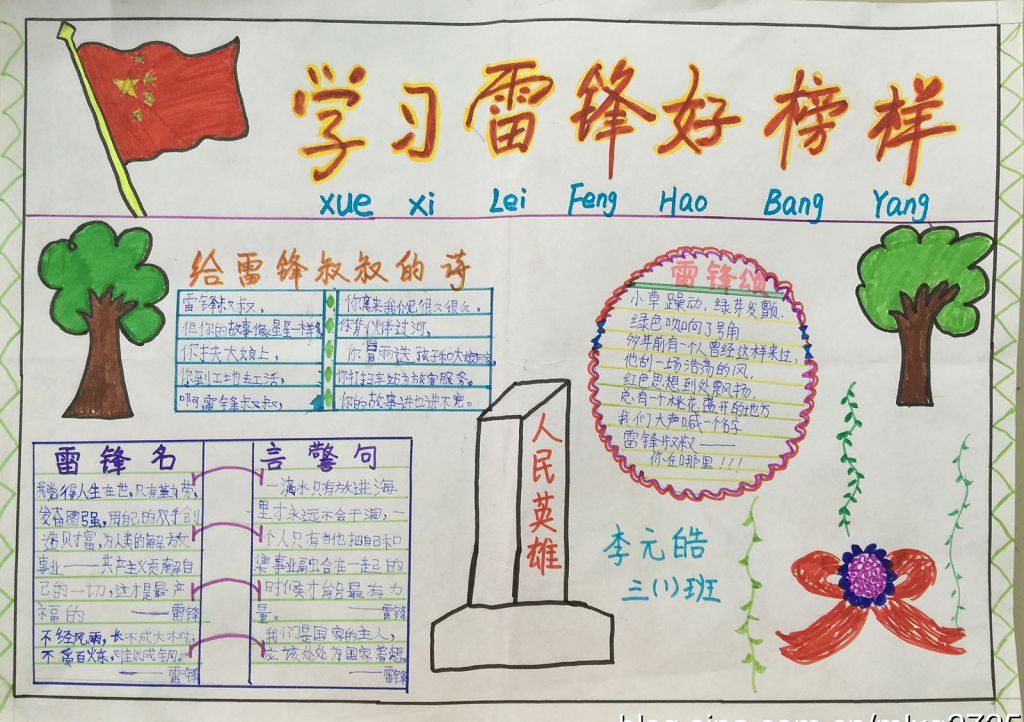 学习雷锋好榜样
xue xi Lei Feng Hao Bang Yang
给雷锋叔叔的诗
雷锋叔叔,
但你的故事像星星一样多
你扶大娘上,
你到工地去工活,
啊,雷锋叔叔,
你离来我们已很久很久,
你背伙伴过河,
你冒雨送孩子和大娘回家,
你打扫车站为旅客服务。
你的故事讲也讲不完。
雷锋颂
小草躁动,绿芽发颤.
绿色吹响了号角
多年前有个人曾经这样来过,
他刮一场浩荡的风,
红色思想到处飘扬,
总有一个桃花盛开的地方
我们大声喊一个名字
雷锋叔叔——
你在哪里!!!
雷锋名言警句
我觉得人生在世,只有勤劳,
发奋图强,用自己的双手创
造财富,为人类的解放
事业——共产主义贡献自
己的一切,这才是最幸
福的 ——雷锋
不经风雨,长不成大树;
不受百炼,难以成钢。
——雷锋
一滴水只有放进海
里才永远不会干涸,一
个人只有当他把自己和
集事业融合在一起的
时候才能最有力
量。——雷锋
我们是国家的主人,
应该处处为国家着想。
——雷锋
人民英雄
李元皓
三(1)班